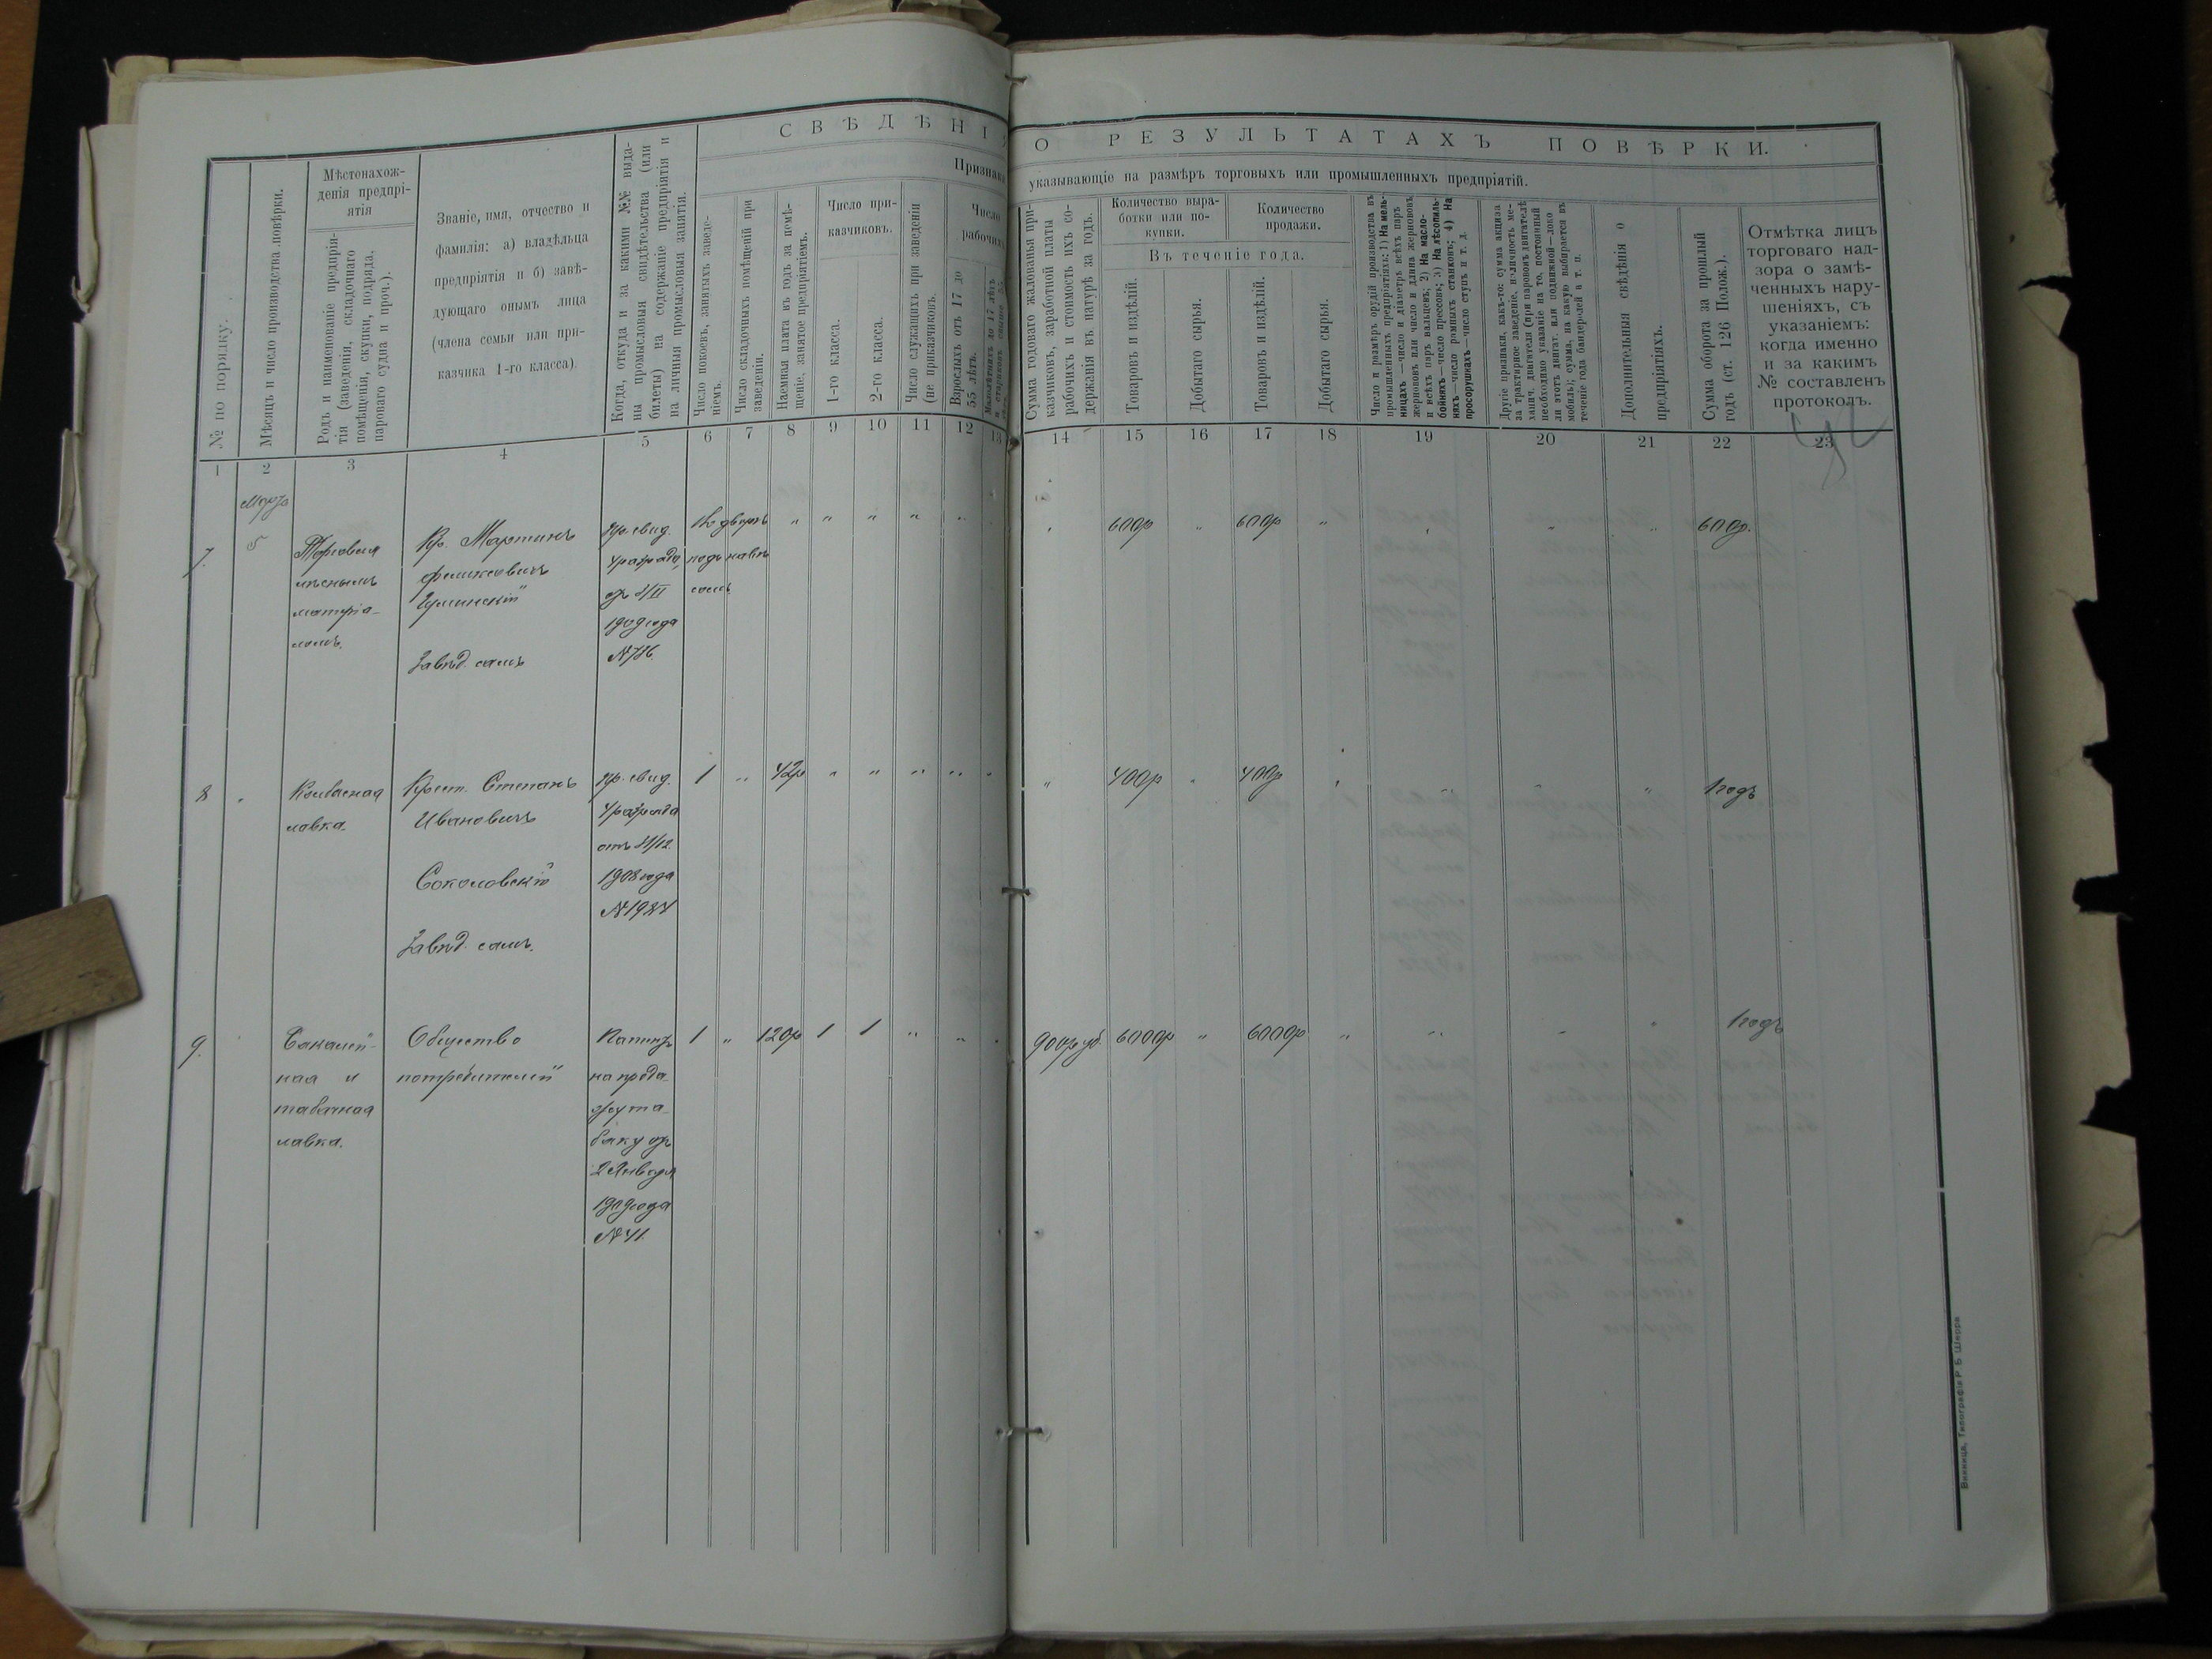 СВѢДѢНІЯ О РЕЗУЛЬТАТАХЪ ПОВѢРКИ.
Признаки указывающіе на размѣръ торговыхъ или промышленныхъ предпріятій.
№ по порядку.
Мѣсяцъ и число производства повѣрки.
Мѣстонахож-
денія предпрі-
ятія
Родъ и наименованіе предпрія-
тія (заведенія, складочнаго
помѣщенія, скупки, подряда,
пароваго судна и проч.).
Званіе, имя, отчество и
фамилія: а) владѣльца
предпріятія и б) завѣ-
дующаго онымъ лица
(члена семьи или при-
казчика 1-го класса).
Когда, откуда и за какими №№ выда-
ны промысловыя свидѣтельства (или
билеты) на содержаніе предпріятія и
на личныя промысловыя занятія.
Число покоевъ, занятыхъ заведе-
ніемъ.
Число складочныхъ помѣщеній при
заведеніи.
Наемная плата въ годъ за помѣ-
щеніе, занятое предпріятіемъ.
Число при-
казчиковъ.
1-го класса.
2-го класса.
Число служащихъ при заведеніи
(не приказчиковъ).
Число
рабочихъ
Взрослыхъ отъ 17 до
55 лѣтъ.
Малолѣтнихъ до 17 лѣтъ
и стариковъ свыше 55
Сумма годоваго жалованья при-
казчиковъ, заработной платы
рабочихъ и стоимость ихъ со-
держанія въ натурѣ за годъ.
Количество выра-
ботки или по-
купки.
Количество
продажи.
Въ теченіе года.
Товаровъ и издѣлій.
Добытаго сырья.
Товаровъ и издѣлій.
Добытаго сырья.
Число и размѣръ орудій производства въ
промышленныхъ предпріятіяхъ: 1) На мель-
ницахъ—число и діаметръ всѣхъ паръ
жернововъ или число и длина жернововъ
и всѣхъ паръ вальцевъ; 2) На масло-
бойняхъ—число прессовъ; 3) На лѣсопиль-
няхъ—число рамныхъ станковъ; 4) На
просорушкахъ—число ступъ и т. д.
Другіе признаки, какъ-то: сумма акциза
за трактирное заведеніе, наличность ме-
ханич. двигателя (при паровомъ двигателѣ
необходимо указаніе на то, постоянный
ли этотъ двигат. или подвижной—локо
мобиль); сумма, на какую выбирается въ
теченіе года бандеролей и т. п.
Дополнительныя свѣдѣнія о
предпріятіяхъ.
Сумма оборота за прошлый
годъ (ст. 126 Полож.).
Отмѣтка лицъ
торговаго над-
зора о замѣ-
ченныхъ нару-
шеніяхъ, съ
указаніемъ:
когда именно
и за какимъ
№ составленъ
протоколъ.
1 2 3 4 5 6 7 8 9 10 11 12 13 14 15 16 17 18 19 20 21 22 23
Мартъ
7. 5 Торговля
лѣснымъ
матеріа-
ломъ.
Кр. Мартинъ
Завѣд. самъ
Пр. свид.
4 разряда
1909 года
№ 786.
" " " " " 600р " 600р " " " 600р.
8 " Колбасная
лавка.
Крест. Степанъ
Ивановичъ
Соколовскій
Завѣд. самъ.
Пр. свид.
4 разряда
отъ 31/12.
1908 года
1 " 42р " " " " " " 400р " 400р " " " " 1 годъ
9. Бакалей-
ная и
табачная
лавка.
Общество
потребителей
Патентъ
на прода-
жу та-
баку отъ
2 Января
1909 года
№ 41.
1 " 120р 1 1 " " 6000р " 6000р " " " " 1 годъ
Винница, Типографія Р. Б. Шерра